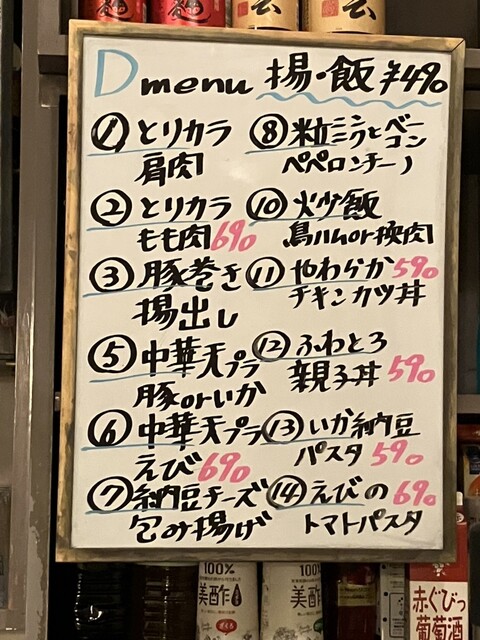 D menu 揚・飯 ¥490
① とりカラ
肩肉
② とりカラ
もも肉 690
③ 豚巻き
揚出し
⑤ 中華天プラ
豚orいか
⑥ 中華天プラ
えび 690
⑦ 納豆チーズ
包み揚げ
⑧ 粒ミンクとベーコン
ペペロンチーノ
⑩ 炒飯
鳥ハムor挽肉
⑪ やわらか 590
チキンカツ丼
⑫ ふわとろ
親子丼 590
⑬ いか納豆
パスタ 590
⑭ えびの 690
トマトパスタ
100%
美酢
ざくろ
100%
美酢
赤ぐびっ
葡萄酒